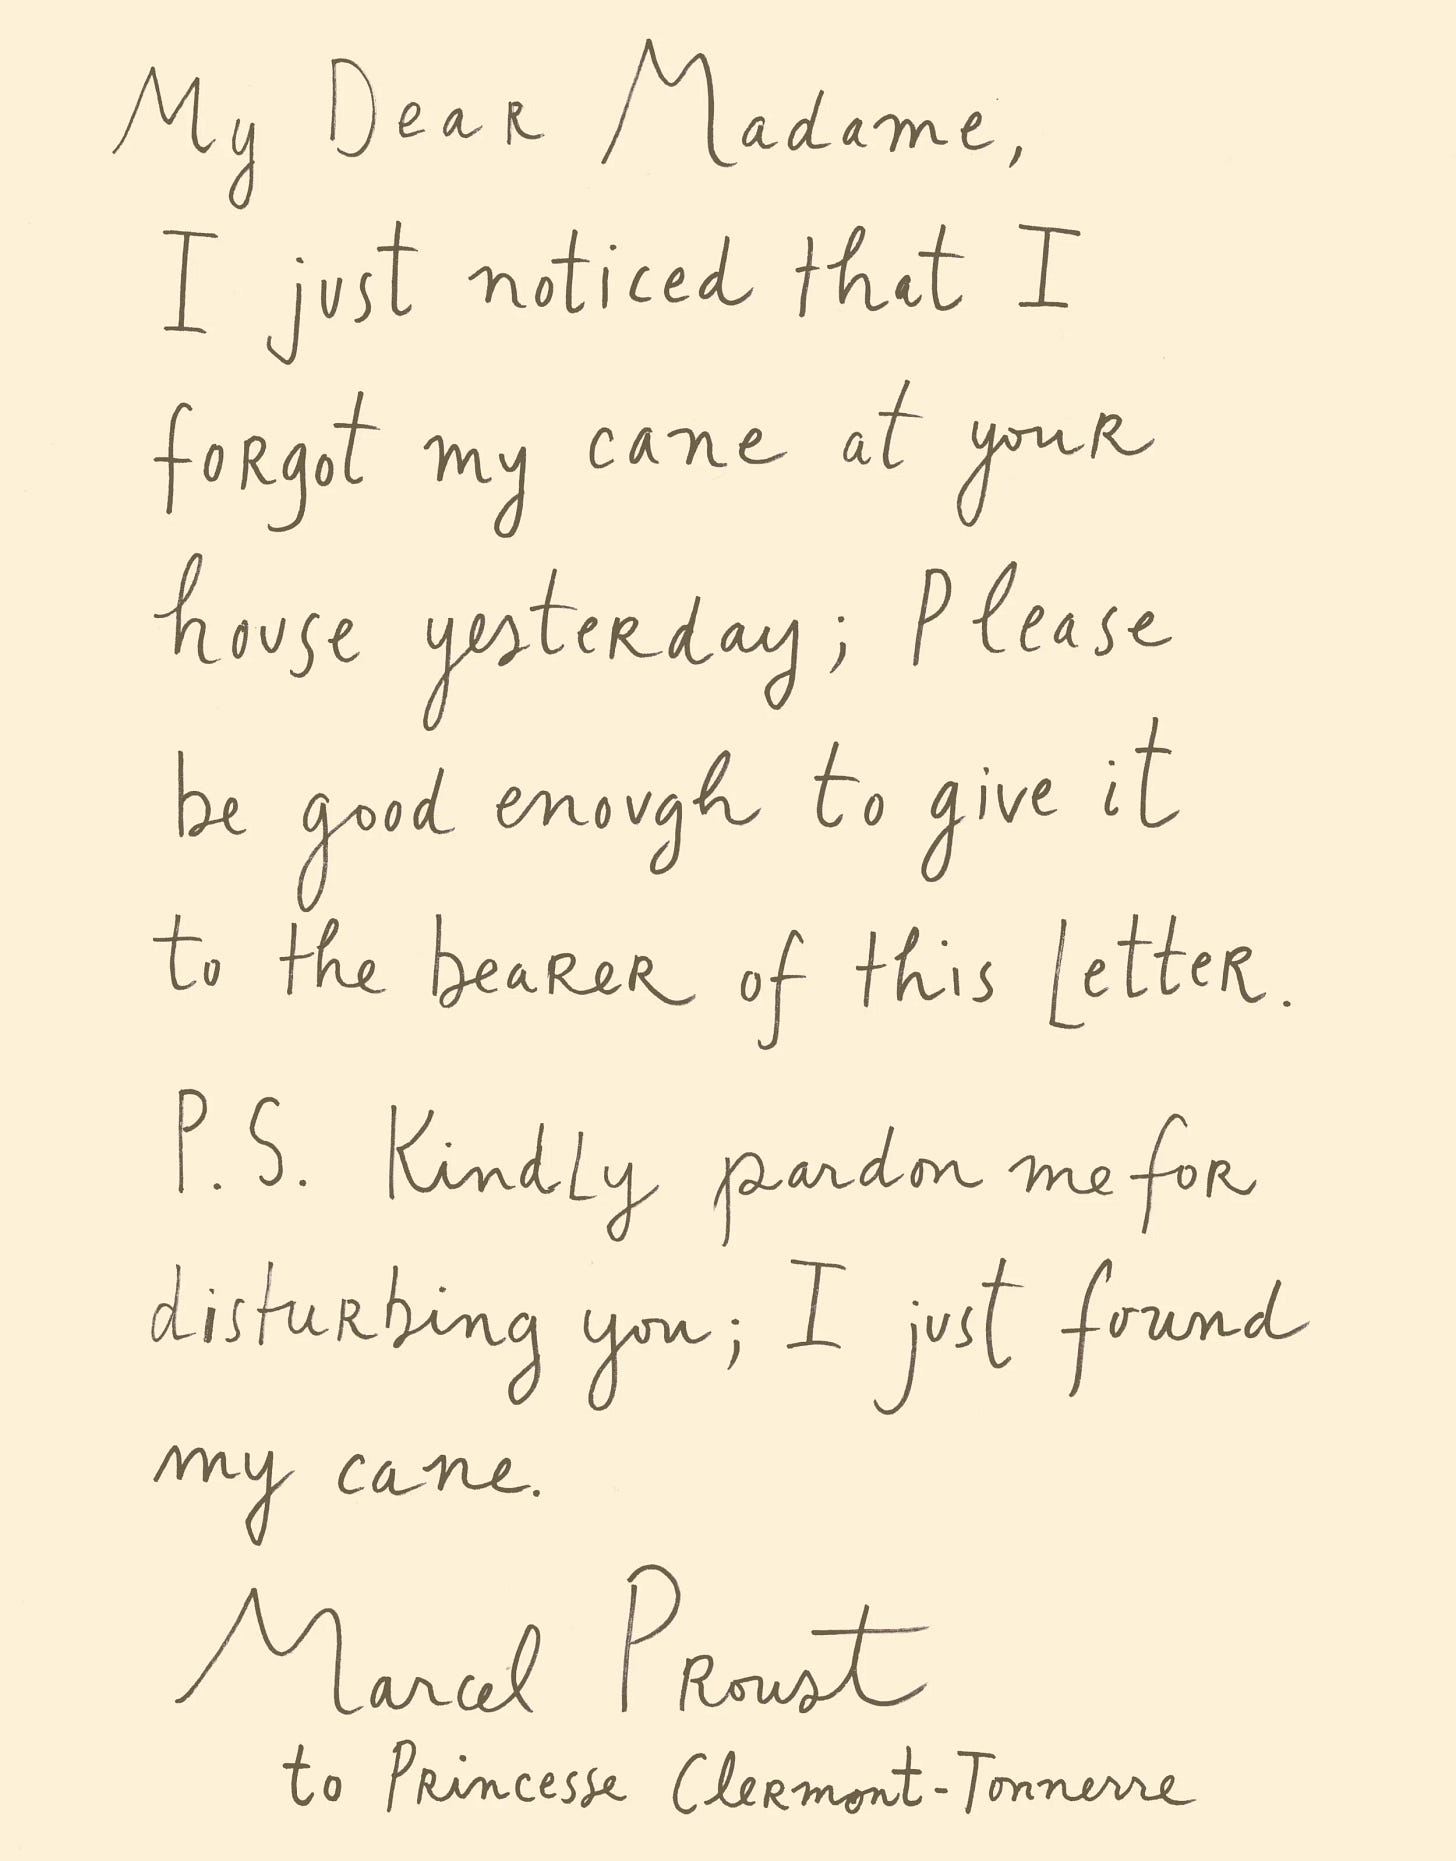 My Dear Madame,
I just noticed that I
forgot my cane at your
house yesterday; Please
be good enough to give it
to the bearer of this Letter.
P.S. Kindly pardon me for
disturbing you; I just found
my cane.
Marcel Proust
to Princesse Clermont-Tonnerre